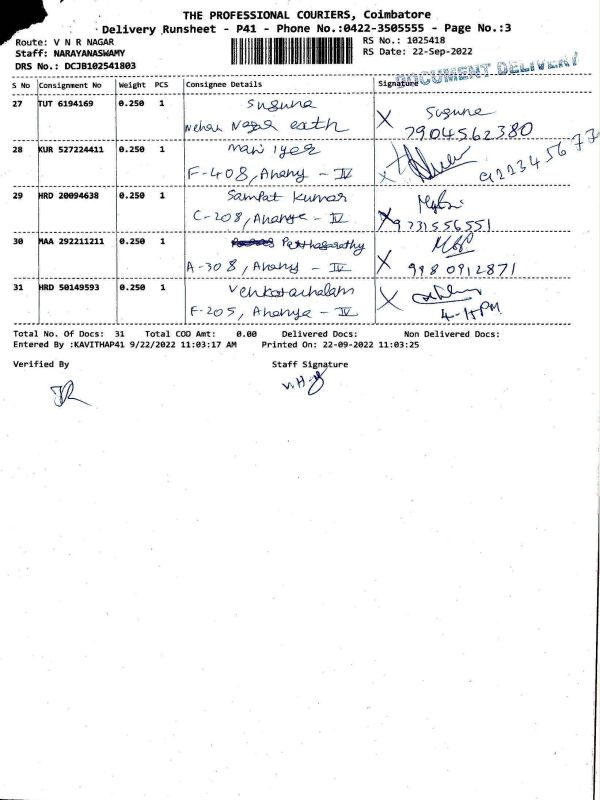 THE PROFESSIONAL COURIERS, Coimbatore
Delivery Runsheet - P41 - Phone No.:0422-3505555 - Page No.:3
Route: V N R NAGAR RS No.: 1025418
Staff: NARAYANASWAMY RS Date: 22-Sep-2022
DRS No.: DCJB102541803
DOCUMENT DELIVERY
S No Consignment No Weight PCS Consignee Details Signature
27 TUT 6194169 0.250 1 Suguna Suguna
Nehru Nagar 7904562380
28 KUR 527224411 0.250 1 Mani iyer
F-408, Anany - IV
29 HRD 20094638 0.250 1 Sampat Kumar
C-208, Ananye - IV 9731556551
30 MAA 292211211 0.250 1
A-308, Anany - IV 9980912871
31 HRD 50149593 0.250 1 Venkatachalam
F-205, Ananya - IV
Total No. Of Docs: 31 Total COD Amt: 0.00 Delivered Docs: Non Delivered Docs:
Entered By :KAVITHAP41 9/22/2022 11:03:17 AM Printed On: 22-09-2022 11:03:25
Verified By Staff Signature